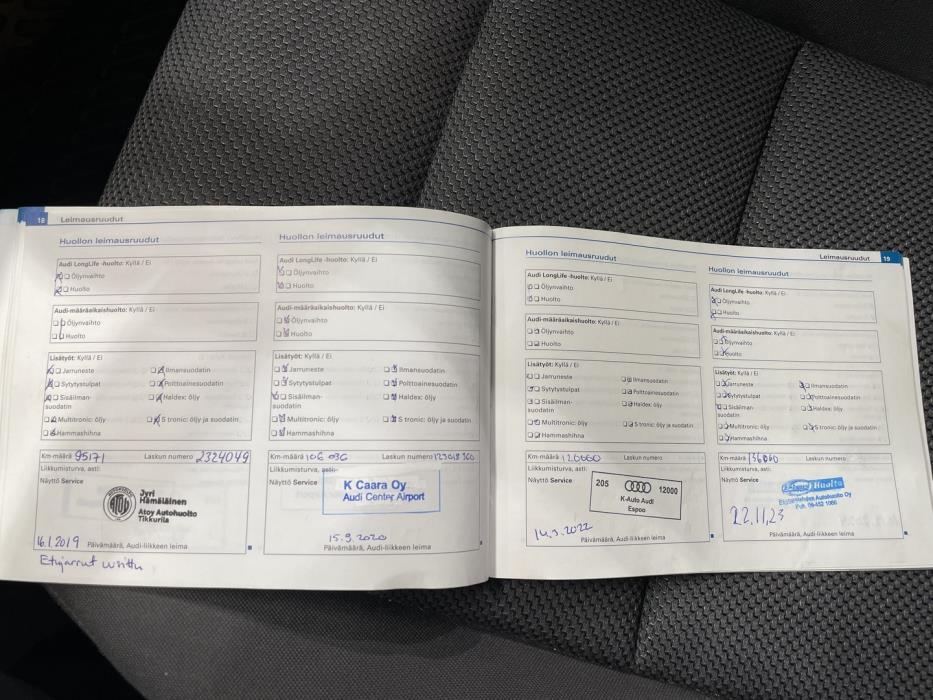 18 Leimausruudut
Huollon leimausruudut
Audi LongLife -huolto: Kyllä / Ei
Öljynvaihto
Huolto
Audi-määräaikaishuolto: Kyllä / Ei
Öljynvaihto
Huolto
Lisätyöt: Kyllä / Ei
Jarruneste
Ilmansuodatin
Sytytystulpat
Polttoainesuodatin
Sisäilman-
suodatin
Haldex: öljy
Multitronic: öljy
S tronic: öljy ja suodatin
Hammashihna
Km-määrä 95171 Laskun numero 2324049
Liikkumisturva, asti:
Näyttö Service
Jyri
Hämäläinen
Atoy Autohuolto
Tikkurila
16.1.2019 Päivämäärä, Audi-liikkeen leima
Etujarrut uusittu
Huollon leimausruudut
Audi LongLife -huolto: Kyllä / Ei
Öljynvaihto
Huolto
Audi-määräaikaishuolto: Kyllä / Ei
Öljynvaihto
Huolto
Lisätyöt: Kyllä / Ei
Jarruneste
Ilmansuodatin
Sytytystulpat
Polttoainesuodatin
Sisäilman-
suodatin
Haldex: öljy
Multitronic: öljy
S tronic: öljy ja suodatin
Hammashihna
Km-määrä 106 036 Laskun numero
Liikkumisturva, asti:
Näyttö Service
K Caara Oy
Audi Center Airport
15.9.2020
Päivämäärä, Audi-liikkeen leima
Leimausruudut 19
Huollon leimausruudut
Audi LongLife -huolto: Kyllä / Ei
Öljynvaihto
Huolto
Audi-määräaikaishuolto: Kyllä / Ei
Öljynvaihto
Huolto
Lisätyöt: Kyllä / Ei
Jarruneste
Ilmansuodatin
Sytytystulpat
Polttoainesuodatin
Sisäilman-
suodatin
Haldex: öljy
Multitronic: öljy
S tronic: öljy ja suodatin
Hammashihna
Km-määrä 120660 Laskun numero
Liikkumisturva, asti:
Näyttö Service
205 12000
K-Auto Audi
Espoo
14.3.2022
Päivämäärä, Audi-liikkeen leima
Huollon leimausruudut
Audi LongLife -huolto: Kyllä / Ei
Öljynvaihto
Huolto
Audi-määräaikaishuolto: Kyllä / Ei
Öljynvaihto
Huolto
Lisätyöt: Kyllä / Ei
Jarruneste
Ilmansuodatin
Sytytystulpat
Polttoainesuodatin
Sisäilman-
suodatin
Haldex: öljy
Multitronic: öljy
S tronic: öljy ja suodatin
Hammashihna
Km-määrä 136000 Laskun numero
Liikkumisturva, asti:
Näyttö Service
Huolto
Autohuolto Oy
22.11.23
Päivämäärä, Audi-liikkeen leima